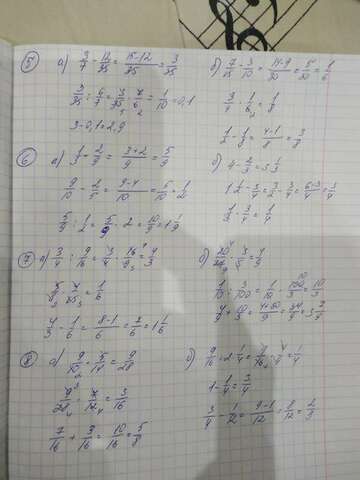 5 а) 3/7 - 12/35 = (15-12)/35 = 3/35
3/35 : 6/7 = 3/35 · 7/6 = 1/10 = 0,1
3-0,1=2,9
б) 7/15 - 3/10 = (14-9)/30 = 5/30 = 1/6
3/4 · 1/6 = 1/8
1/2 - 1/8 = (4-1)/8 = 3/8
6 а) 1/3 + 2/9 = (3+2)/9 = 5/9
9/10 - 2/5 = (9-4)/10 = 5/10 = 1/2
5/9 : 1/2 = 5/9 · 2 = 10/9 = 1 1/9
б) 4 - 2/3 = 3 1/3
1 1/2 - 3/4 = 3/2 - 3/4 = (6-3)/4 = 3/4
1/3 · 3/4 = 1/4
7 а) 3/4 : 9/16 = 3/4 · 16/9 = 4/3
7/25 = 1/6
4/3 - 1/6 = (8-1)/6 = 7/6 = 1 1/6
б) 3/5 = 4/9
1/10 : 3/100 = 1/10 · 100/3 = 10/3
4/9 + 10/3 = 34/9 = 3 7/9
8 а) 9/10 · 5/14 = 9/28
9/28 · 7/12 = 3/16
7/16 + 3/16 = 10/16 = 5/8
б) 9/16 : 2 1/4 = 9/16 · 4/9 = 1/4
1 - 1/4 = 3/4
3/4 - 1/12 = (9-1)/12 = 8/12 = 2/3